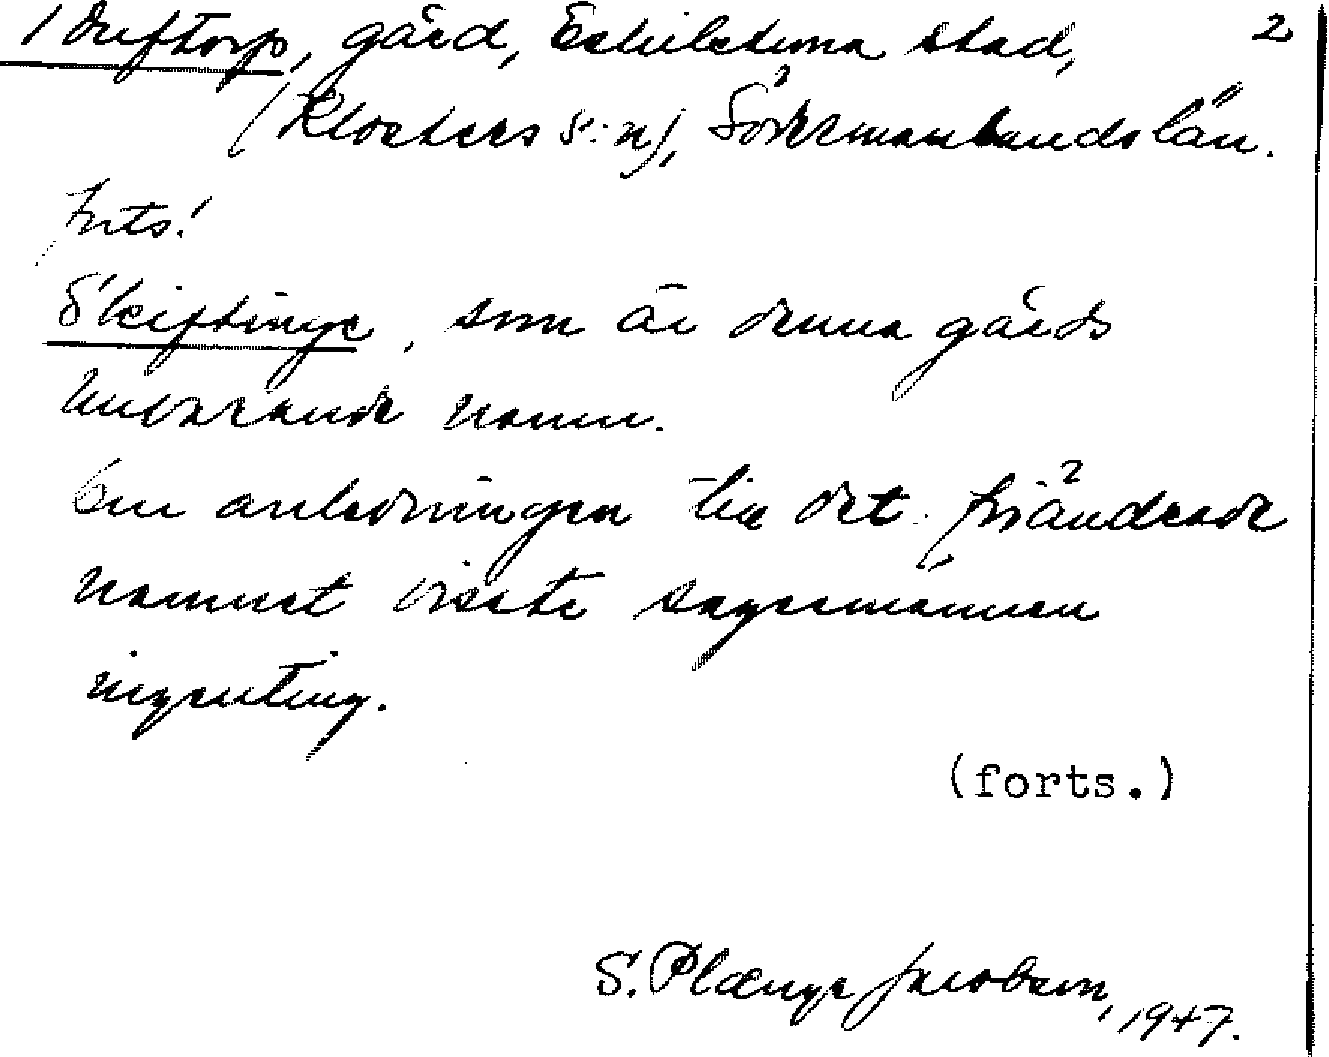 gård, Eskilstuna stad, 2
(Klosters s:n), Södermanlands län.
Forts.
Skiftinge, som är denna gårds
nuvarande namn.
Om anledningen till det förändrade
namnet visste sagesmannen
ingenting.
(forts.)
S. Plænge Jacobson, 1947.